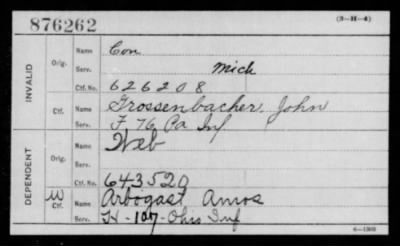 876262 (3-H-4)
INVALID
Orig.
Name Con
Serv. Mich
Ctf. No. 626208
Ctf.
Name Grossenbacher, John
Serv. F 76 Pa Inf
DEPENDENT
Orig.
Name Web
Serv.
Ctf. No. 643520
W Ctf.
Name Arbogast Amos
Serv. H-107-Ohio Inf
6-1389